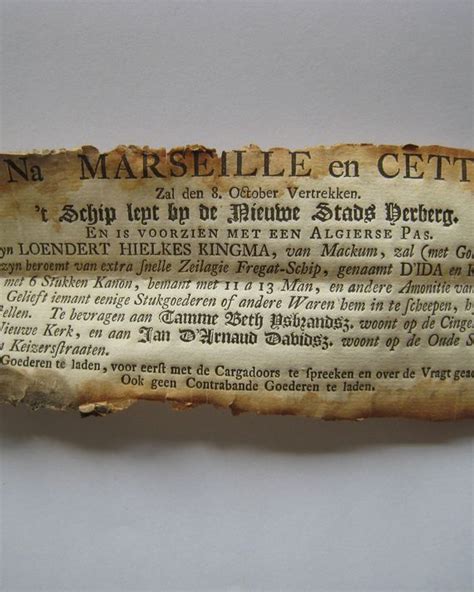 Na MARSEILLE en CETT
Zal den 8. October Vertrekken.
't Schip leyt by de Nieuwe Stads Herberg.
EN IS VOORZIEN MET EEN ALGIERSE PAS.
zyn LOENDERT HIELKES KINGMA, van Mackum, zal (met Go
zyn beroemt van extra ſnelle Zeilagie Fregat-Schip, genaamt D'IDA en
met 6 Stukken Kanon, bemant met 11 a 13 Man, en andere Amonitie van
Gelieft iemant eenige Stukgoederen of andere Waren hem in te ſcheepen, b
ellen. Te bevragen aan Tamme Beth Ysbrandsz. woont op de Cinge
Nieuwe Kerk, en aan Jan D'Arnaud Davidsz. woont op de Oude S
n Keizersſtraaten.
Goederen te laden, voor eerſt met de Cargadoors te ſpreeken en over de Vragt geac
Ook geen Contrabande Goederen te laden.